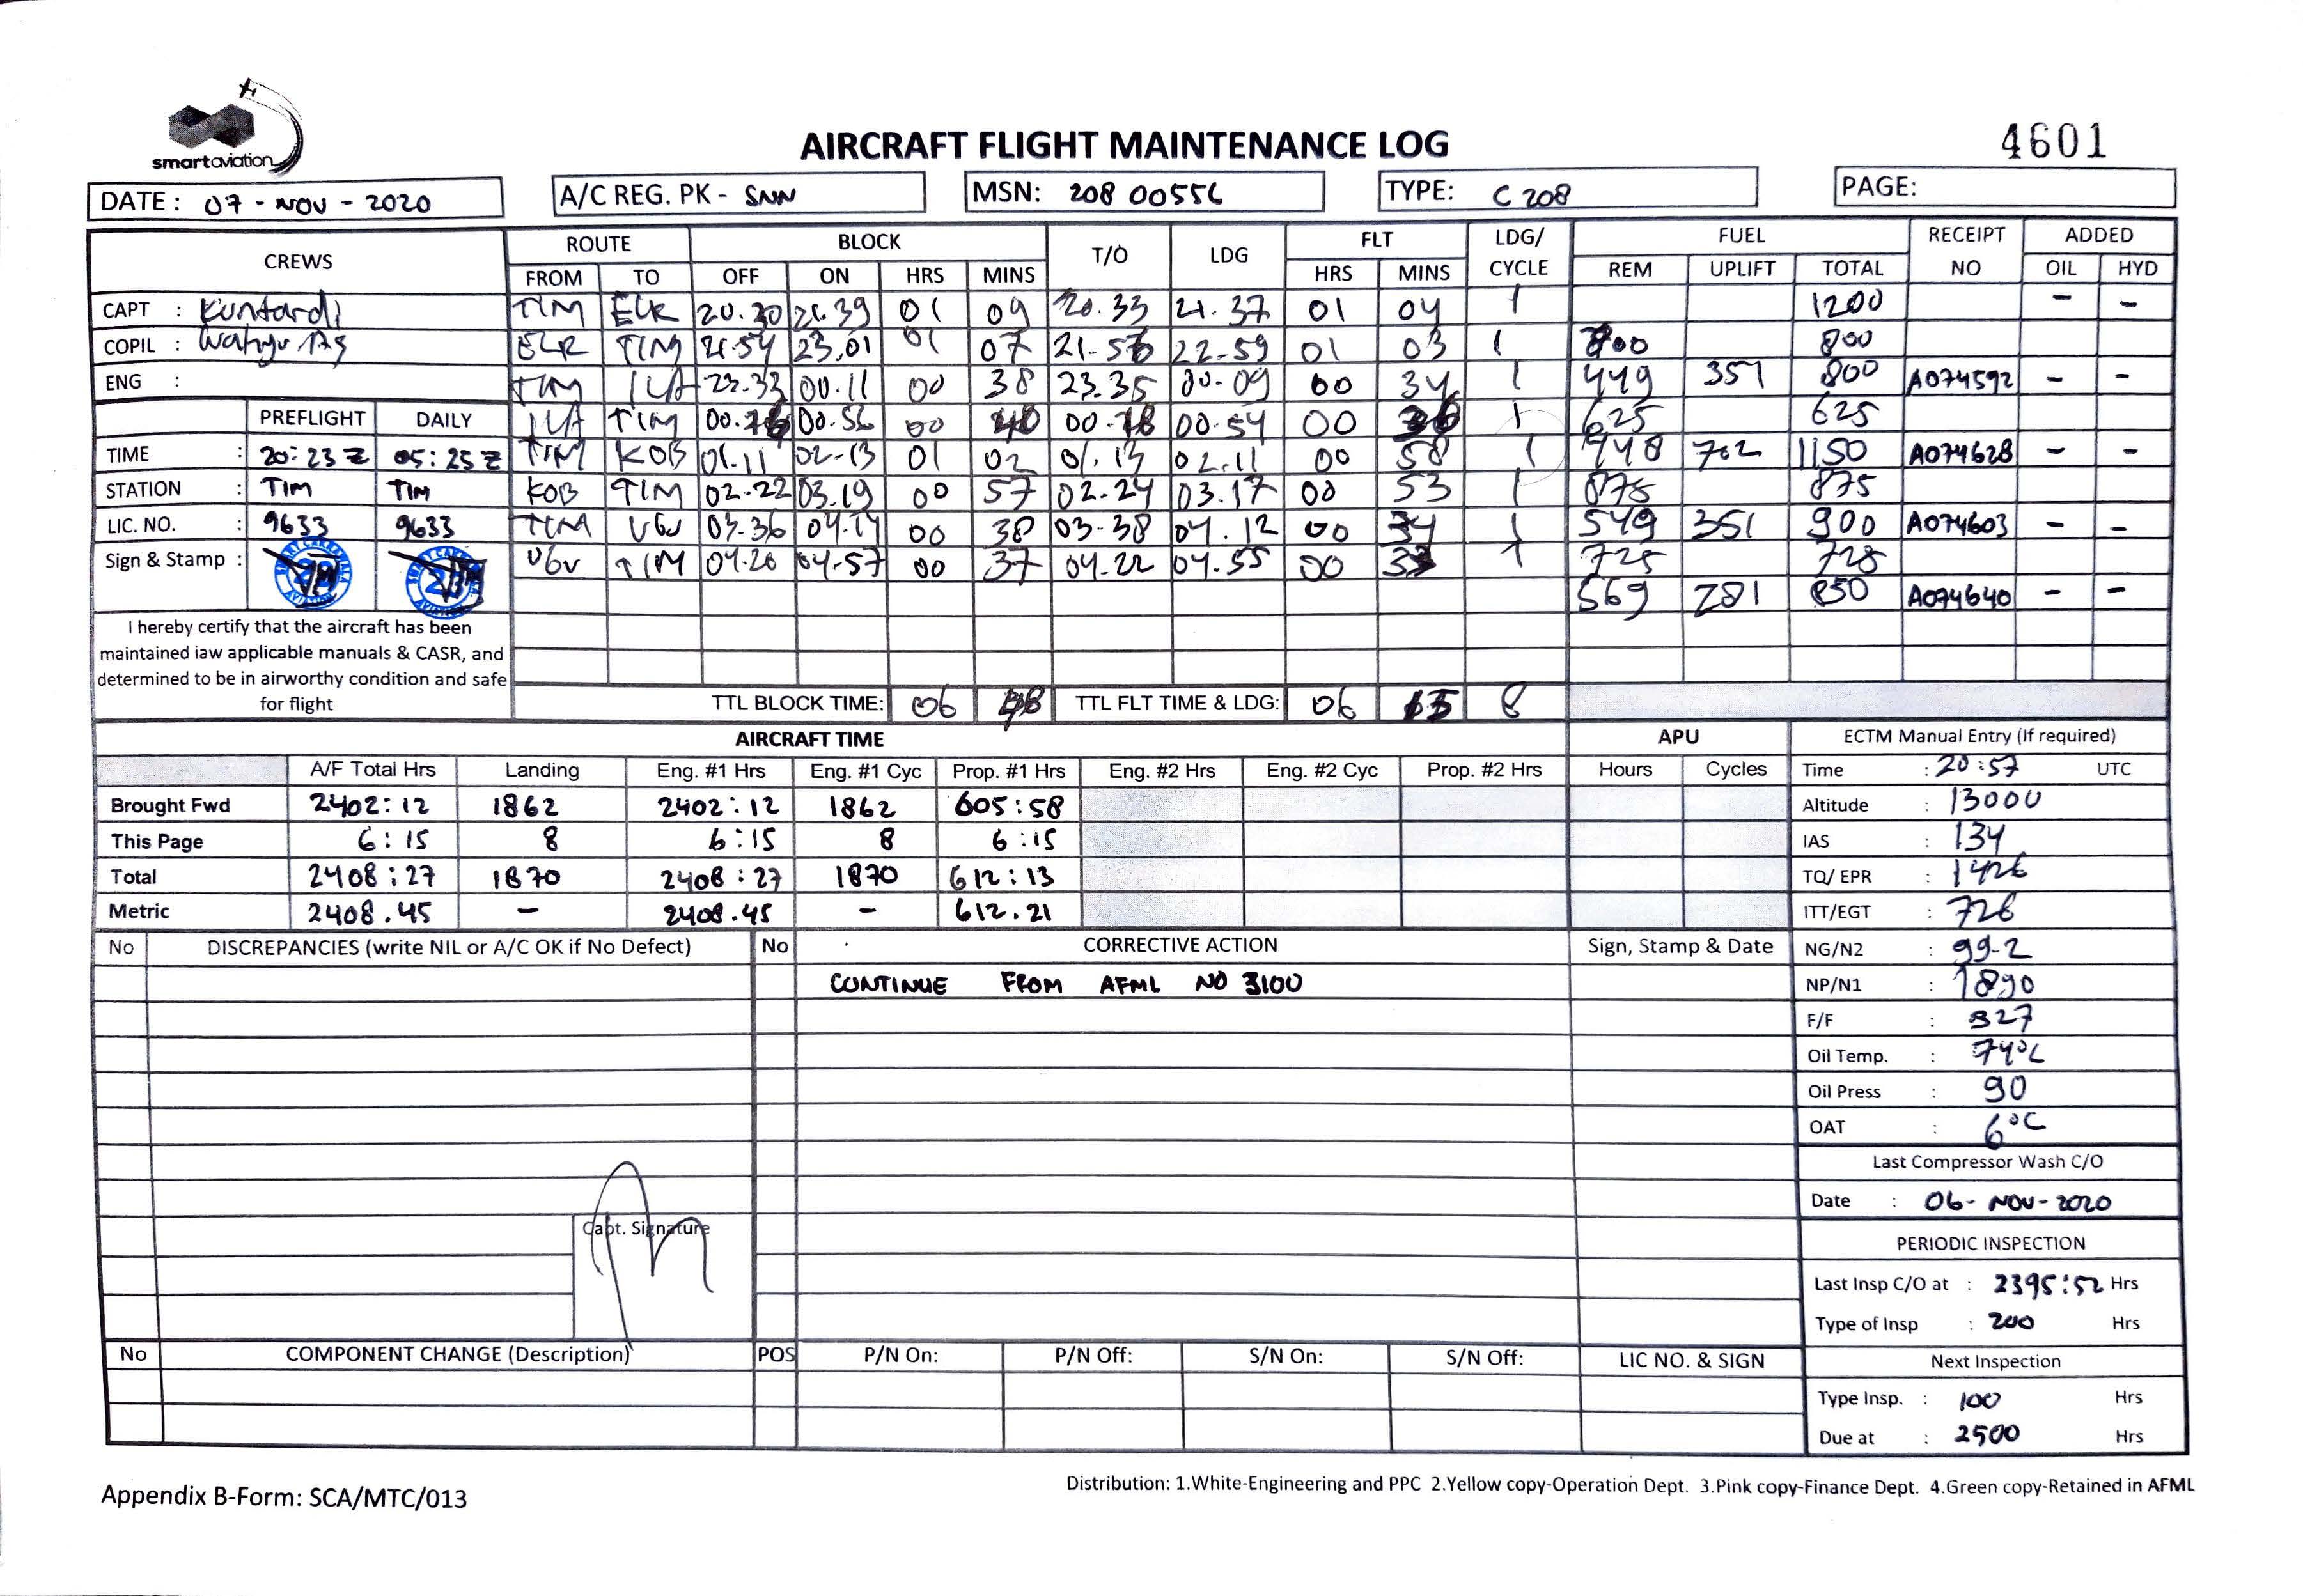 smartaviation
AIRCRAFT FLIGHT MAINTENANCE LOG
4601
DATE : 07 - NOV - 2020
A/C REG. PK - SNN
MSN: 208 00556
TYPE: C 208
PAGE:
CREWS ROUTE BLOCK T/O LDG FLT LDG/ CYCLE FUEL RECEIPT NO ADDED
FROM TO OFF ON HRS MINS HRS MINS REM UPLIFT TOTAL OIL HYD
CAPT : Kuntardi TIM ELR 20.30 21.39 01 09 20.33 21.37 01 04 1 1200 - -
COPIL : Wahyu ELR TIM 21.54 23.01 01 07 21.56 22.59 01 03 1 800 800
ENG : TIM ILA 23.33 00.11 00 38 23.35 00.09 00 34 1 449 351 800 A074592 - -
PREFLIGHT DAILY ILA TIM 00.16 00.56 00 40 00.18 00.54 00 36 1 625 625
TIME : 20:23 Z 05:25 Z TIM KOB 01.11 02-13 01 02 01.13 02.11 00 58 1 448 702 1150 A074628 - -
STATION : TIM TIM KOB TIM 02.22 03.19 00 57 02-24 03.17 00 53 1 875 875
LIC. NO. : 9633 9633 TIM UGU 03.36 04.14 00 38 03-38 04.12 00 34 1 549 351 900 A074603 - -
Sign & Stamp : UGU TIM 04.20 04-57 00 37 04-22 04.55 00 33 1 725 725
569 281 850 A074640 - -
I hereby certify that the aircraft has been
maintained iaw applicable manuals & CASR, and
determined to be in airworthy condition and safe
for flight
TTL BLOCK TIME: 06 48 TTL FLT TIME & LDG: 06 15 8
AIRCRAFT TIME APU ECTM Manual Entry (If required)
A/F Total Hrs Landing Eng. #1 Hrs Eng. #1 Cyc Prop. #1 Hrs Eng. #2 Hrs Eng. #2 Cyc Prop. #2 Hrs Hours Cycles Time : 20:57 UTC
Brought Fwd 2402:12 1862 2402:12 1862 605:58 Altitude : 13000
This Page 6:15 8 6:15 8 6:15 IAS : 134
Total 2408:27 1870 2408:27 1870 612:13 TQ/ EPR : 1426
Metric 2408.45 - 2408.45 - 612.21 ITT/EGT : 726
No DISCREPANCIES (write NIL or A/C OK if No Defect) No CORRECTIVE ACTION Sign, Stamp & Date NG/N2 : 99-2
CONTINUE FROM AFML NO 3100 NP/N1 : 1890
F/F : 327
Oil Temp. : 74°C
Oil Press : 90
OAT : 6°C
Last Compressor Wash C/O
Date : 06- NOV - 2020
Capt. Signature
PERIODIC INSPECTION
Last Insp C/O at : 2395:52 Hrs
Type of Insp : 200 Hrs
No COMPONENT CHANGE (Description) POS P/N On: P/N Off: S/N On: S/N Off: LIC NO. & SIGN Next Inspection
Type Insp. : 100 Hrs
Due at : 2500 Hrs
Appendix B-Form: SCA/MTC/013
Distribution: 1.White-Engineering and PPC 2.Yellow copy-Operation Dept. 3.Pink copy-Finance Dept. 4.Green copy-Retained in AFML